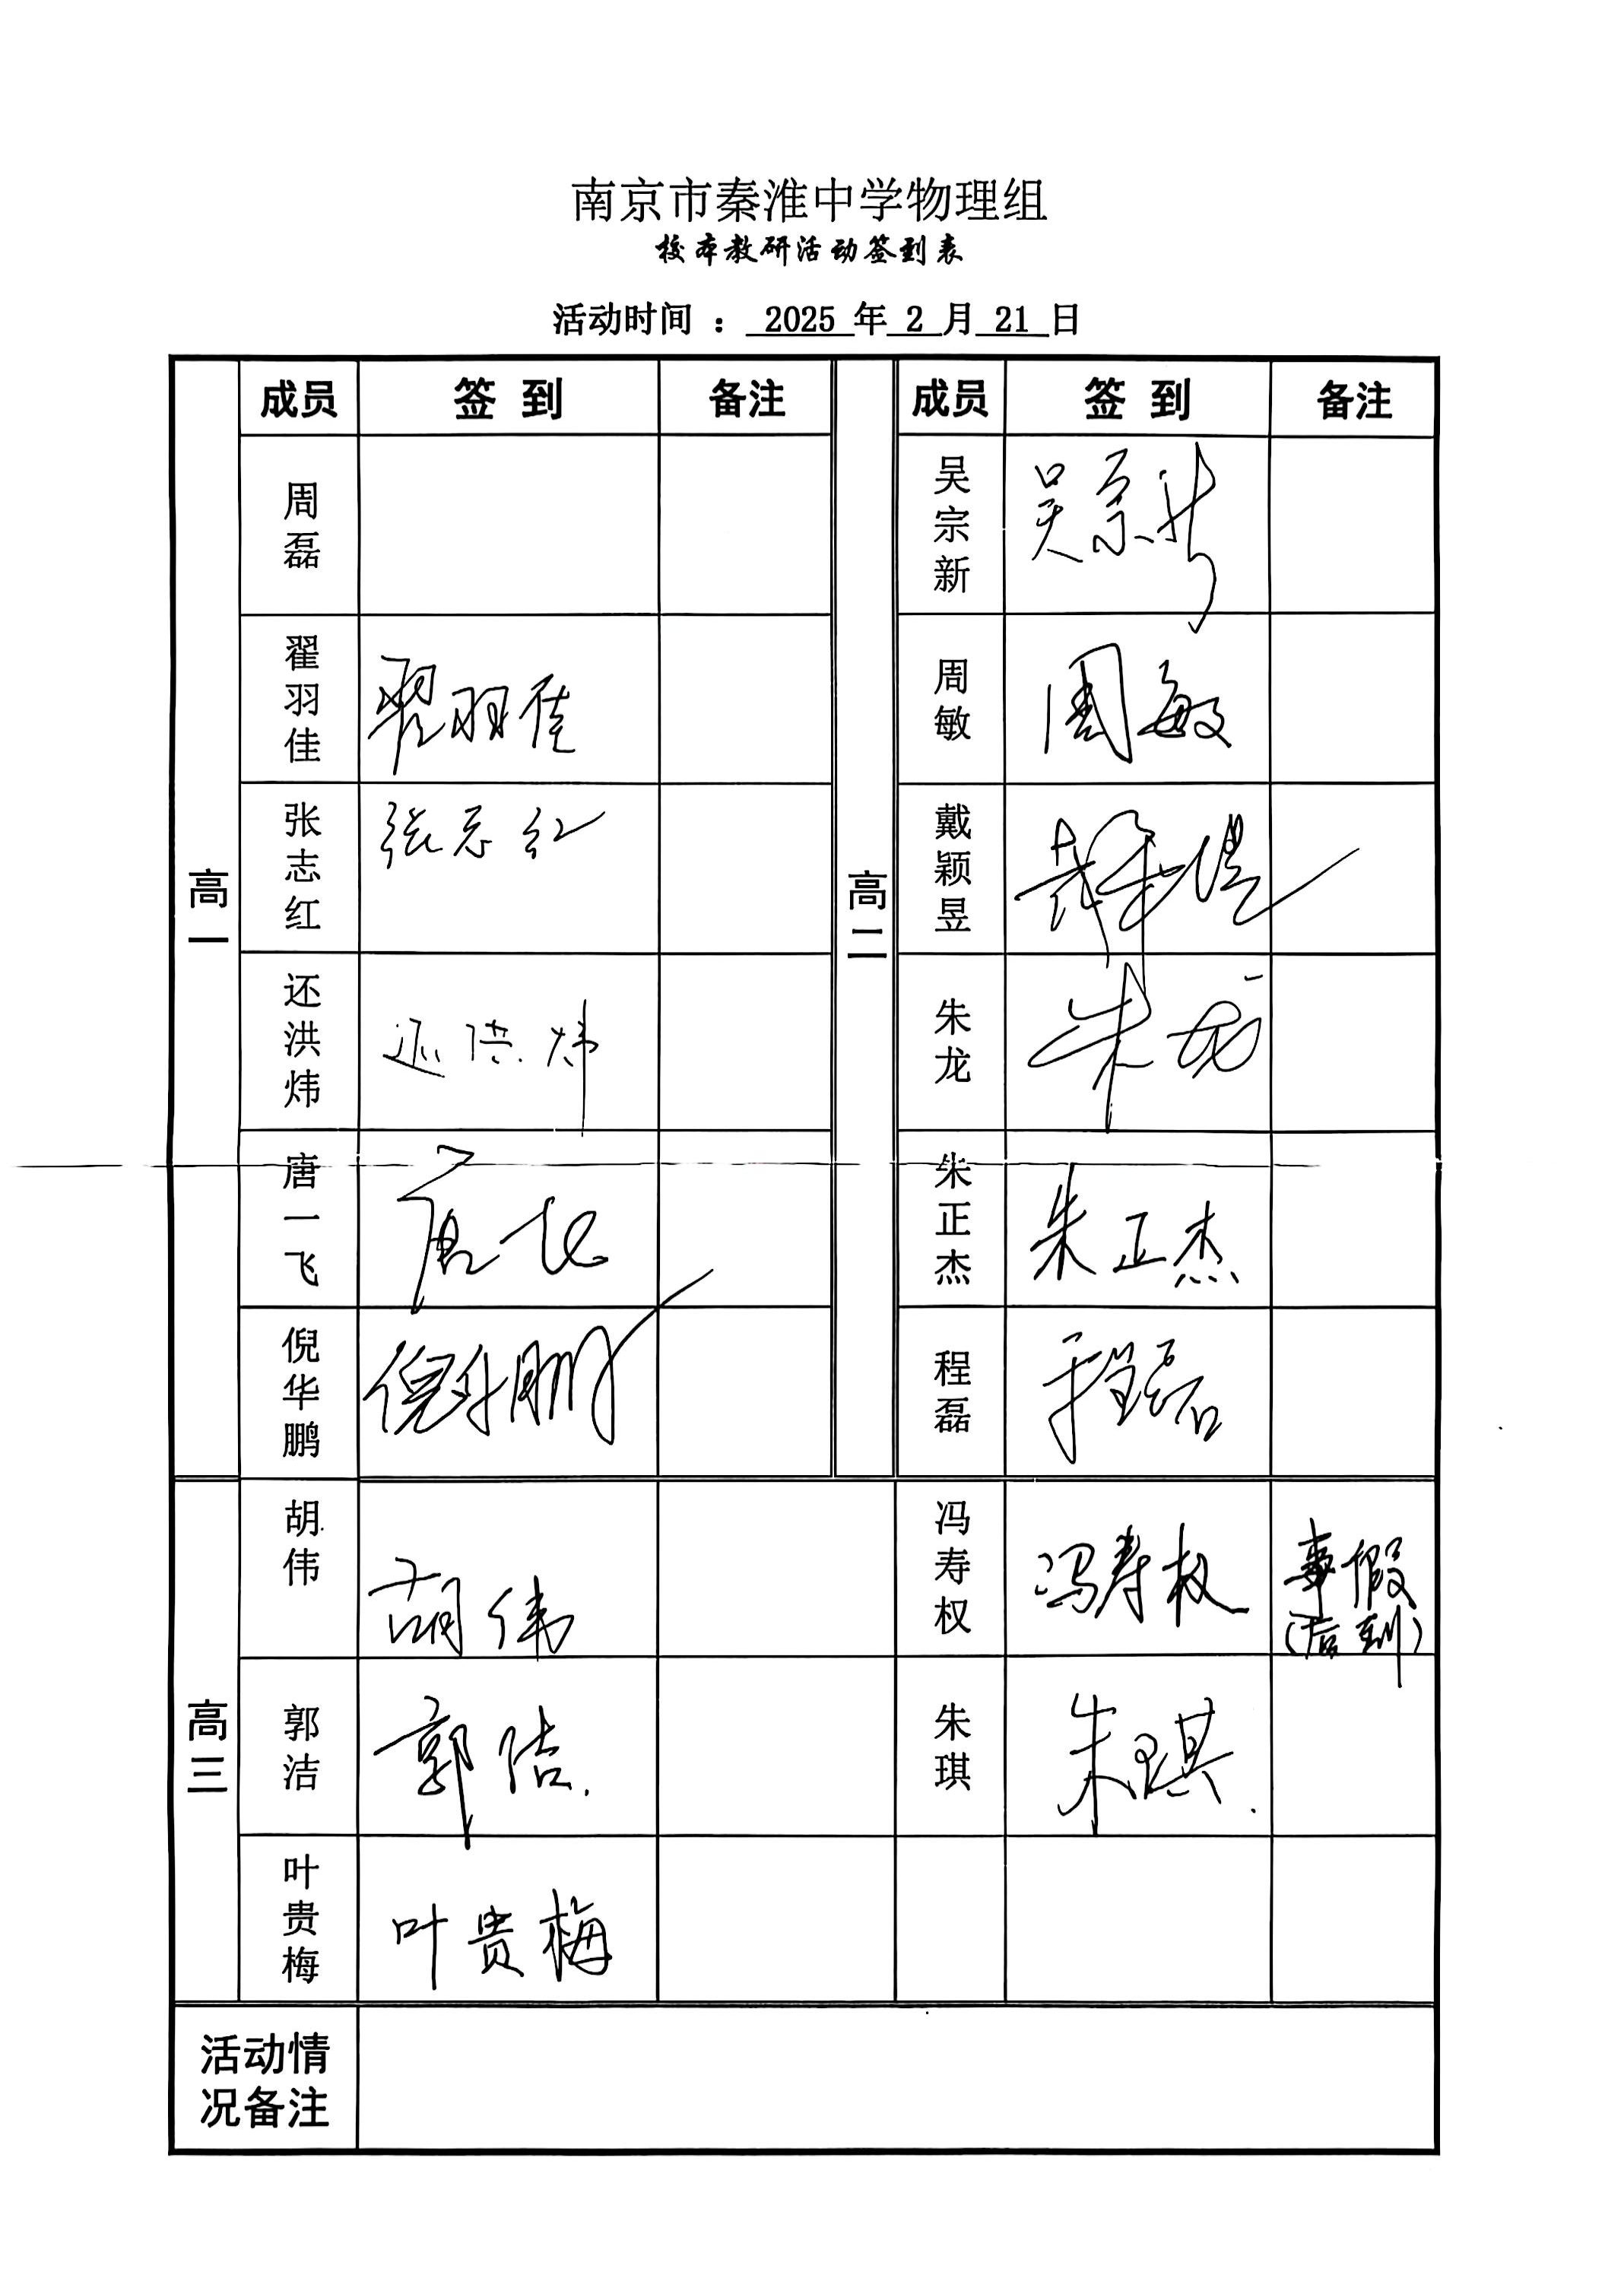 南京市秦淮中学物理组
校本教研活动签到表
活动时间 : 2025 年 2 月 21 日
高一 成员 签 到 备注 高二 成员 签 到 备注
周磊 吴宗新 吴宗新
翟羽佳 翟羽佳 周敏 周敏
张志红 张志红 戴颖昱
还洪炜 还洪炜 朱龙 朱龙
唐一飞 唐一飞 朱正杰 朱正杰
倪华鹏 倪华鹏 程磊 程磊
高三 胡伟 胡伟 冯寿权 冯寿权 事假
(后到)
郭洁 郭洁. 朱琪 朱琪.
叶贵梅 叶贵梅
活动情
况备注